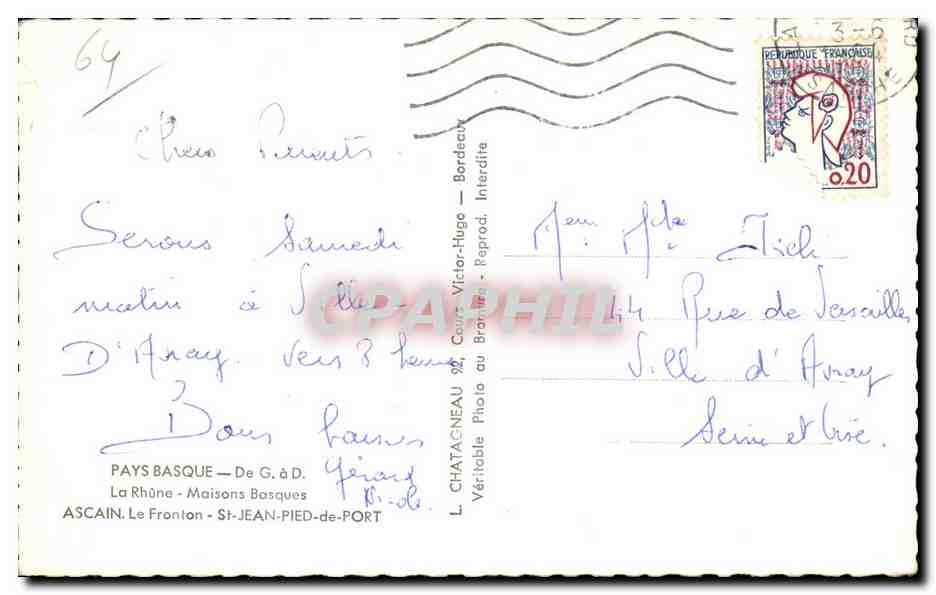 64
Chers Parents.
Serons Samedi
matin à Ville-
D'Avray. vers 8 heures
Bons baisers
Gérard
Nicole.
PAYS BASQUE — De G. à D.
La Rhûne - Maisons Basques
ASCAIN. Le Fronton - St-JEAN-PIED-de-PORT
L. CHATAGNEAU 92, Cours Victor-Hugo — Bordeaux
Véritable Photo au Bromure - Reprod. Interdite
CPAPHIL
3-6
REPUBLIQUE FRANÇAISE
0,20
44 Rue de Versailles
Ville d'Avray
Seine et Oise.